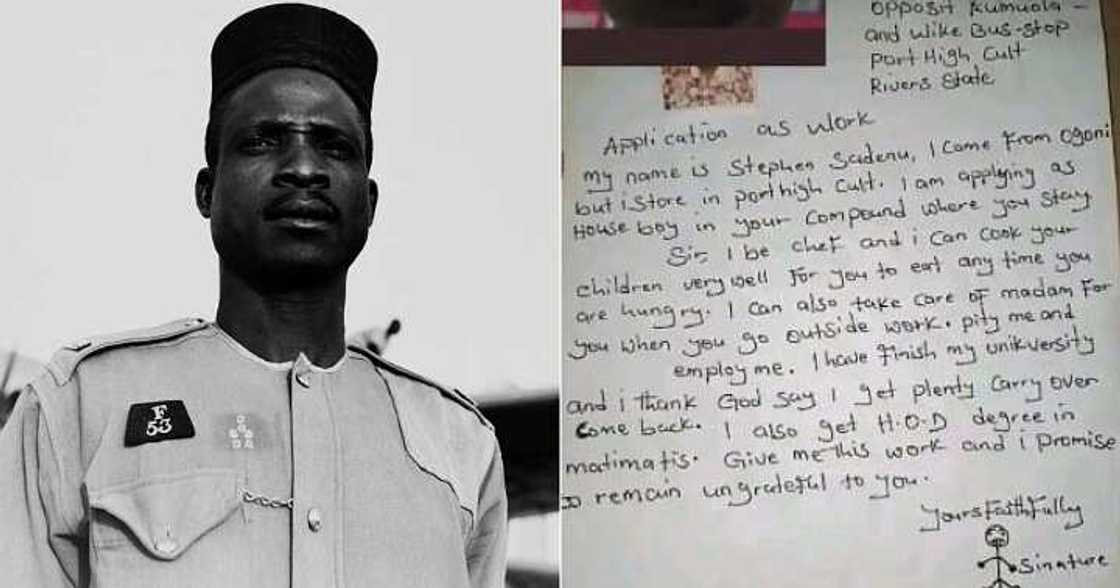 F
53
opposit Rumuola -
and wike Bus-stop
port High Cult
Rivers State
Application as work
my name is Stephen Scidenu, I come from Ogoni
but i store in porthigh Cult. I am applying as
House boy in your Compound where you stay
Sir, I be chef and i can cook your
children very well for you to eat any time you
are hungry. I can also take care of madam for
you when you go outside work. pity me and
employ me. I have finish my unikversity
and i thank God say I get plenty carry over
come back. I also get H.O.D degree in
matimatis. Give me this work and i promise
to remain ungrateful to you.
Yours Faithfully
Sinature